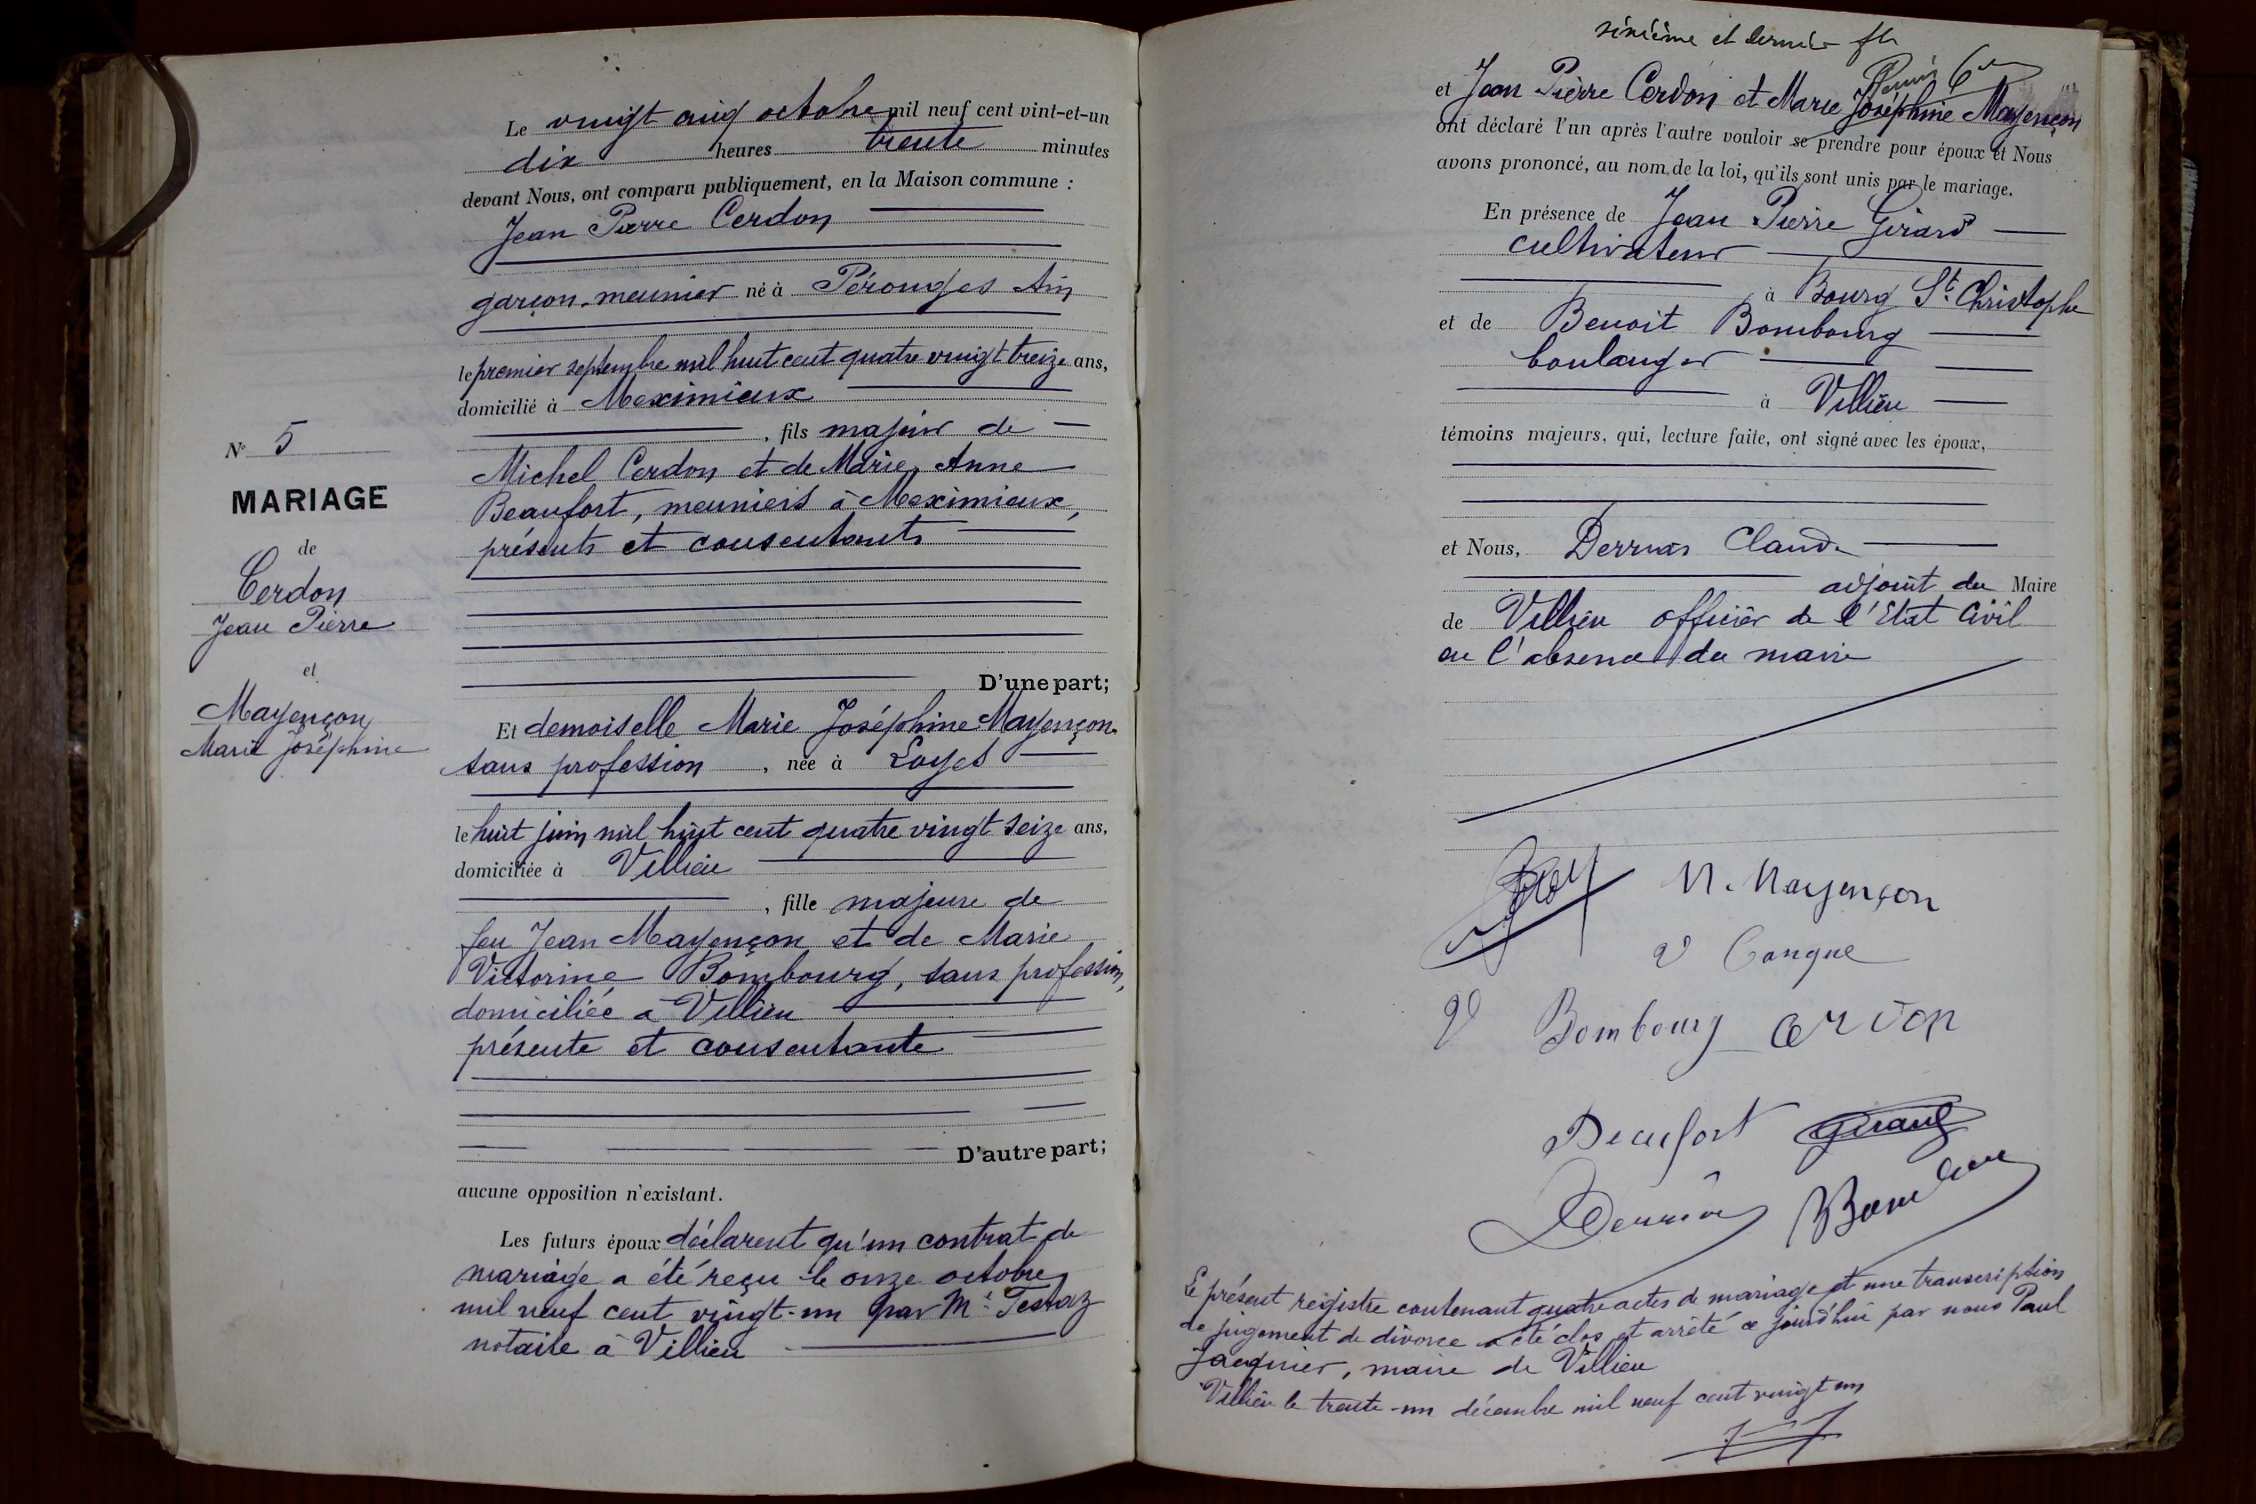 Le vingt cinq octobre mil neuf cent vint-et-un
dix heures trente minutes
devant Nous, ont comparu publiquement, en la Maison commune :
Jean Pierre Cerdon
garçon-meunier né à Pérouges Ain
le premier septembre mil huit cent quatre vingt treize ans,
domicilié à Meximieux
, fils majeur de
Michel Cerdon et de Marie Anne
Beaufort, meuniers à Meximieux,
présents et consentants
D'une part;
N° 5
MARIAGE
de
Cerdon
Jean Pierre
et
Mayençon
Marie Joséphine
Et demoiselle Marie Joséphine Mayençon
sans profession, née à Loyes
le huit juin mil huit cent quatre vingt seize ans,
domiciliée à Villieu
, fille majeure de
feu Jean Mayençon et de Marie
Victorine Bombourg, sans profession,
domiciliée à Villieu
présente et consentante
D'autre part;
aucune opposition n'existant.
Les futurs époux déclarent qu'un contrat de
mariage a été reçu le onze octobre
mil neuf cent vingt-un par Me
notaire à Villieu
sixième et dernier
et Jean Pierre Cerdon et Marie Joséphine Mayençon
ont déclaré l'un après l'autre vouloir se prendre pour époux et Nous
avons prononcé, au nom de la loi, qu'ils sont unis par le mariage.
En présence de Jean Pierre Girard
cultivateur
à Bourg St. Christophe
et de Benoit Bombourg
boulanger
à Villieu
témoins majeurs, qui, lecture faite, ont signé avec les époux,
et Nous, Claude
adjoint du Maire
de Villieu officier de l'Etat Civil
en l'absence du maire
M. Mayençon
V Bombourg Cerdon
Beaufort Girard
Le présent registre contenant quatre actes de mariage et une transcription
de jugement de divorce a été clos et arrêté ce jourd'hui par nous Paul
Jacquier, maire de Villieu
Villieu le trente-un décembre mil neuf cent vingt un